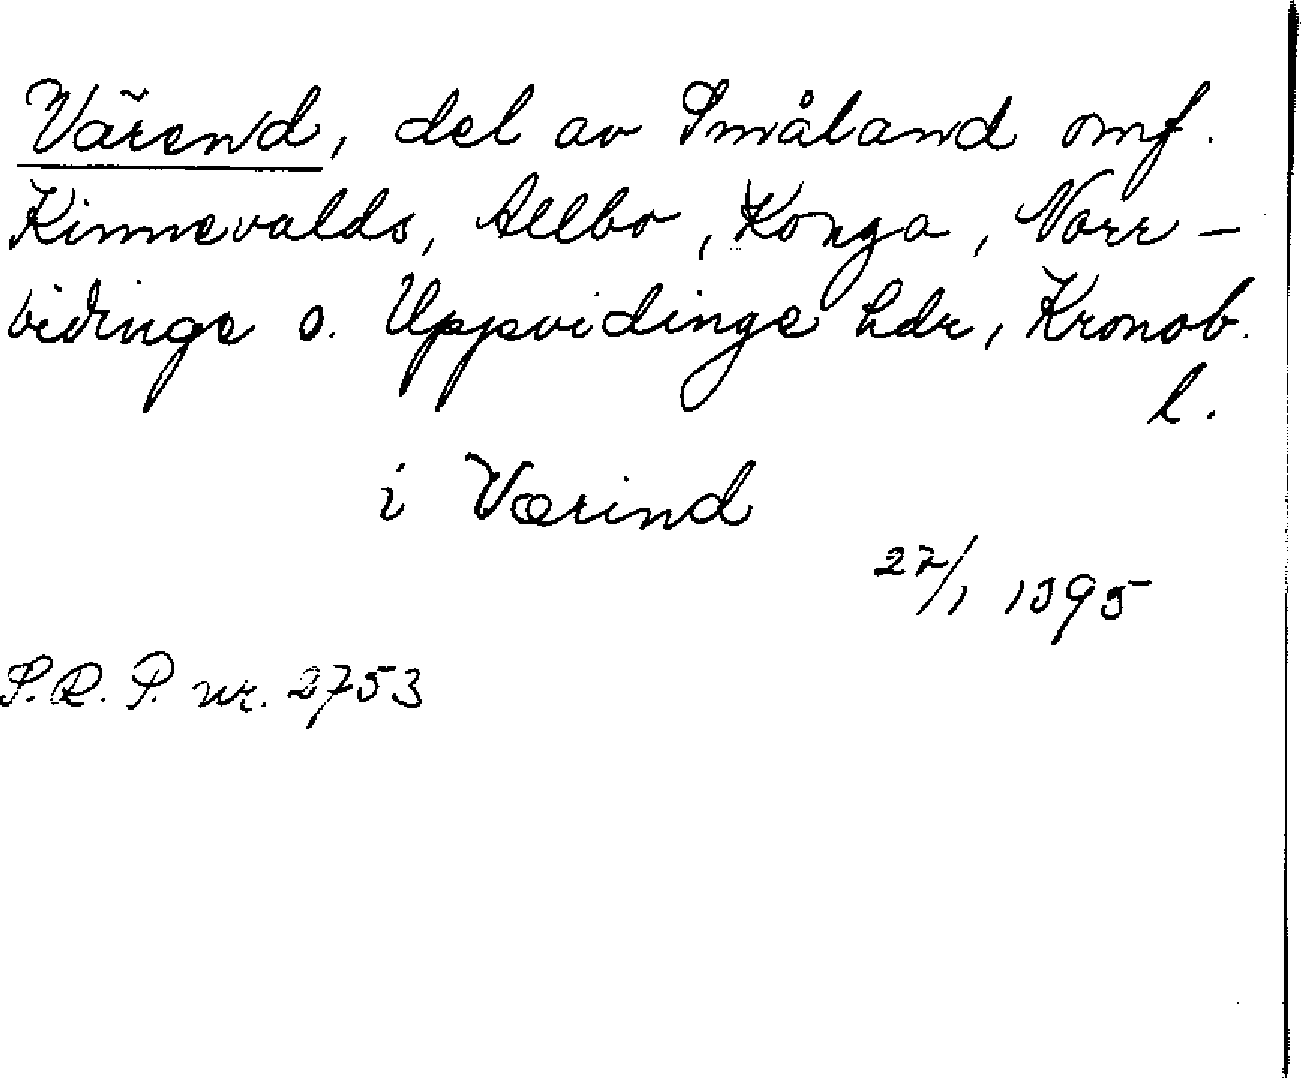 Värend, del av Småland omf.
Kinnevalds, Allbo, Konga, Norr-
vidinge o. Uppvidinge hdr, Kronob.
l.
iVærind
27/1 1395
S.R.P. nr. 2753